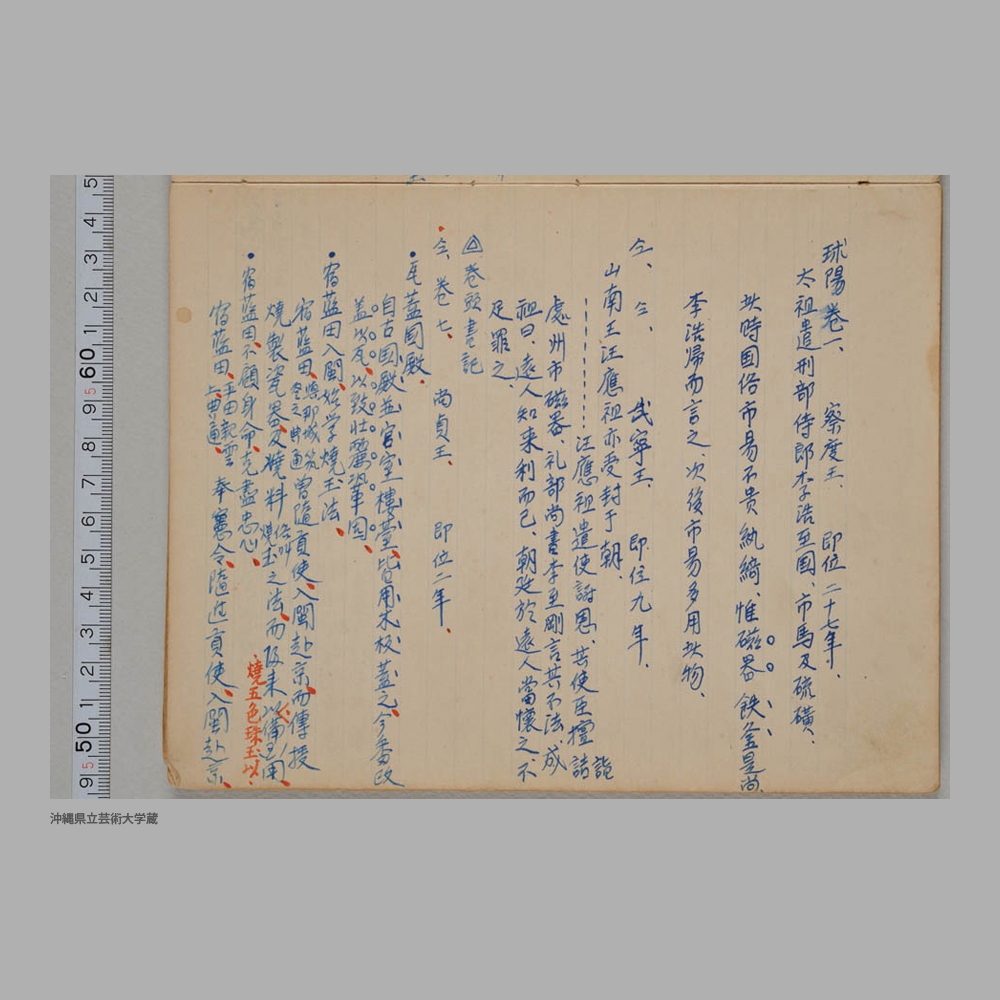 球陽卷一、 察度王、 即位二十七年、
太祖遣刑部侍郎李浩至国、市馬及硫磺、
此時国俗市易不贵紈綺、惟磁器、鉄釜是尚
李浩帰而言之、次後市易多用此物、
仝、仝、 武寧王、 即位九年、
山南王汪應祖亦受封于朝、
汪應祖遣使謝恩、其使臣擅詣
詣
處州市磁器、礼部尚書李至剛言其不法、成
祖曰、遠人知来利而已、朝廷於遠人當懐之不
足罪之、
△卷頭書記
仝、卷七、 尚貞王、 即位二年、
●瓦蓋国殿、
自古国殿並宮室樓臺、皆用木板蓋之、今番改
蓋以瓦、以致壮麗鞏固、
●宿藍田入閩、始学燒玉法、
宿藍田、曽隨貢使、入閩赴京而傳授
燒製瓷器及燒料俗叫燒玉之法、而皈来以備国用、
燒五色珠玉以、
●宿藍田、不顧身命、克盡忠心、
宿藍田、平田親雲上典通、奉憲令、隨進貢使、入閩赴京、
沖縄県立芸術大学蔵
5 4 3 2 1 60 9 8 7 6 5 4 3 2 1 50 9